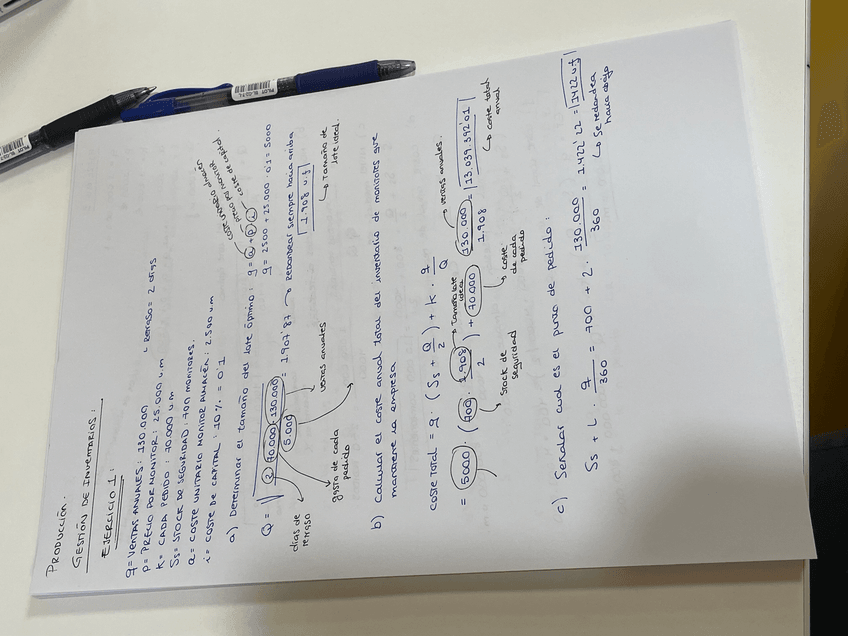 PRODUCCIÓN.
GESTIÓN DE INVENTARIOS:
EJERCICIO 1:
q = VENTAS ANUALES: 130.000
P = PRECIO POR MONITOR: 25.000 u.m
K = CADA PEDIDO: 70.000 u m
L RETRASO = 2 días
Ss = STOCK DE SEGURIDAD: 700 MONITORES.
a = COSTE UNITARIO MONITOR ALMACÉN: 2.500 u.m
i = COSTE DE CAPITAL: 10% = 0'1
a) Determinar el tamaño del lote óptimo: g = a + p · i
coste unitario almacén
precio por monitor
coste de capital.
g = 2500 + 25.000 · 0'1 = 5000
Q = √ 2 · 70.000 · 130.000 / 5.000 = 1.907'87 → Redondear siempre hacia arriba
1.908 u.f
Tamaño de lote ideal.
días de retraso
gasto de cada pedido
ventas anuales
b) Calcular el coste anual total del inventario de monitores que
mantiene la empresa
coste total = g · (Ss + Q/2) + K · q/Q
= 5000 · (700 · 1.908/2) + 70.000 · 130.000/1.908 = 13.039.392'01
Tamaño lote ideal
ventas anuales.
Stock de seguridad
coste de cada pedido
coste total anual
c) Señalar cual es el punto de pedido:
Ss + L · q/360 = 700 + 2 · 130.000/360 = 1.422'22 = 1422 u.f
Se redondea hacia abajo